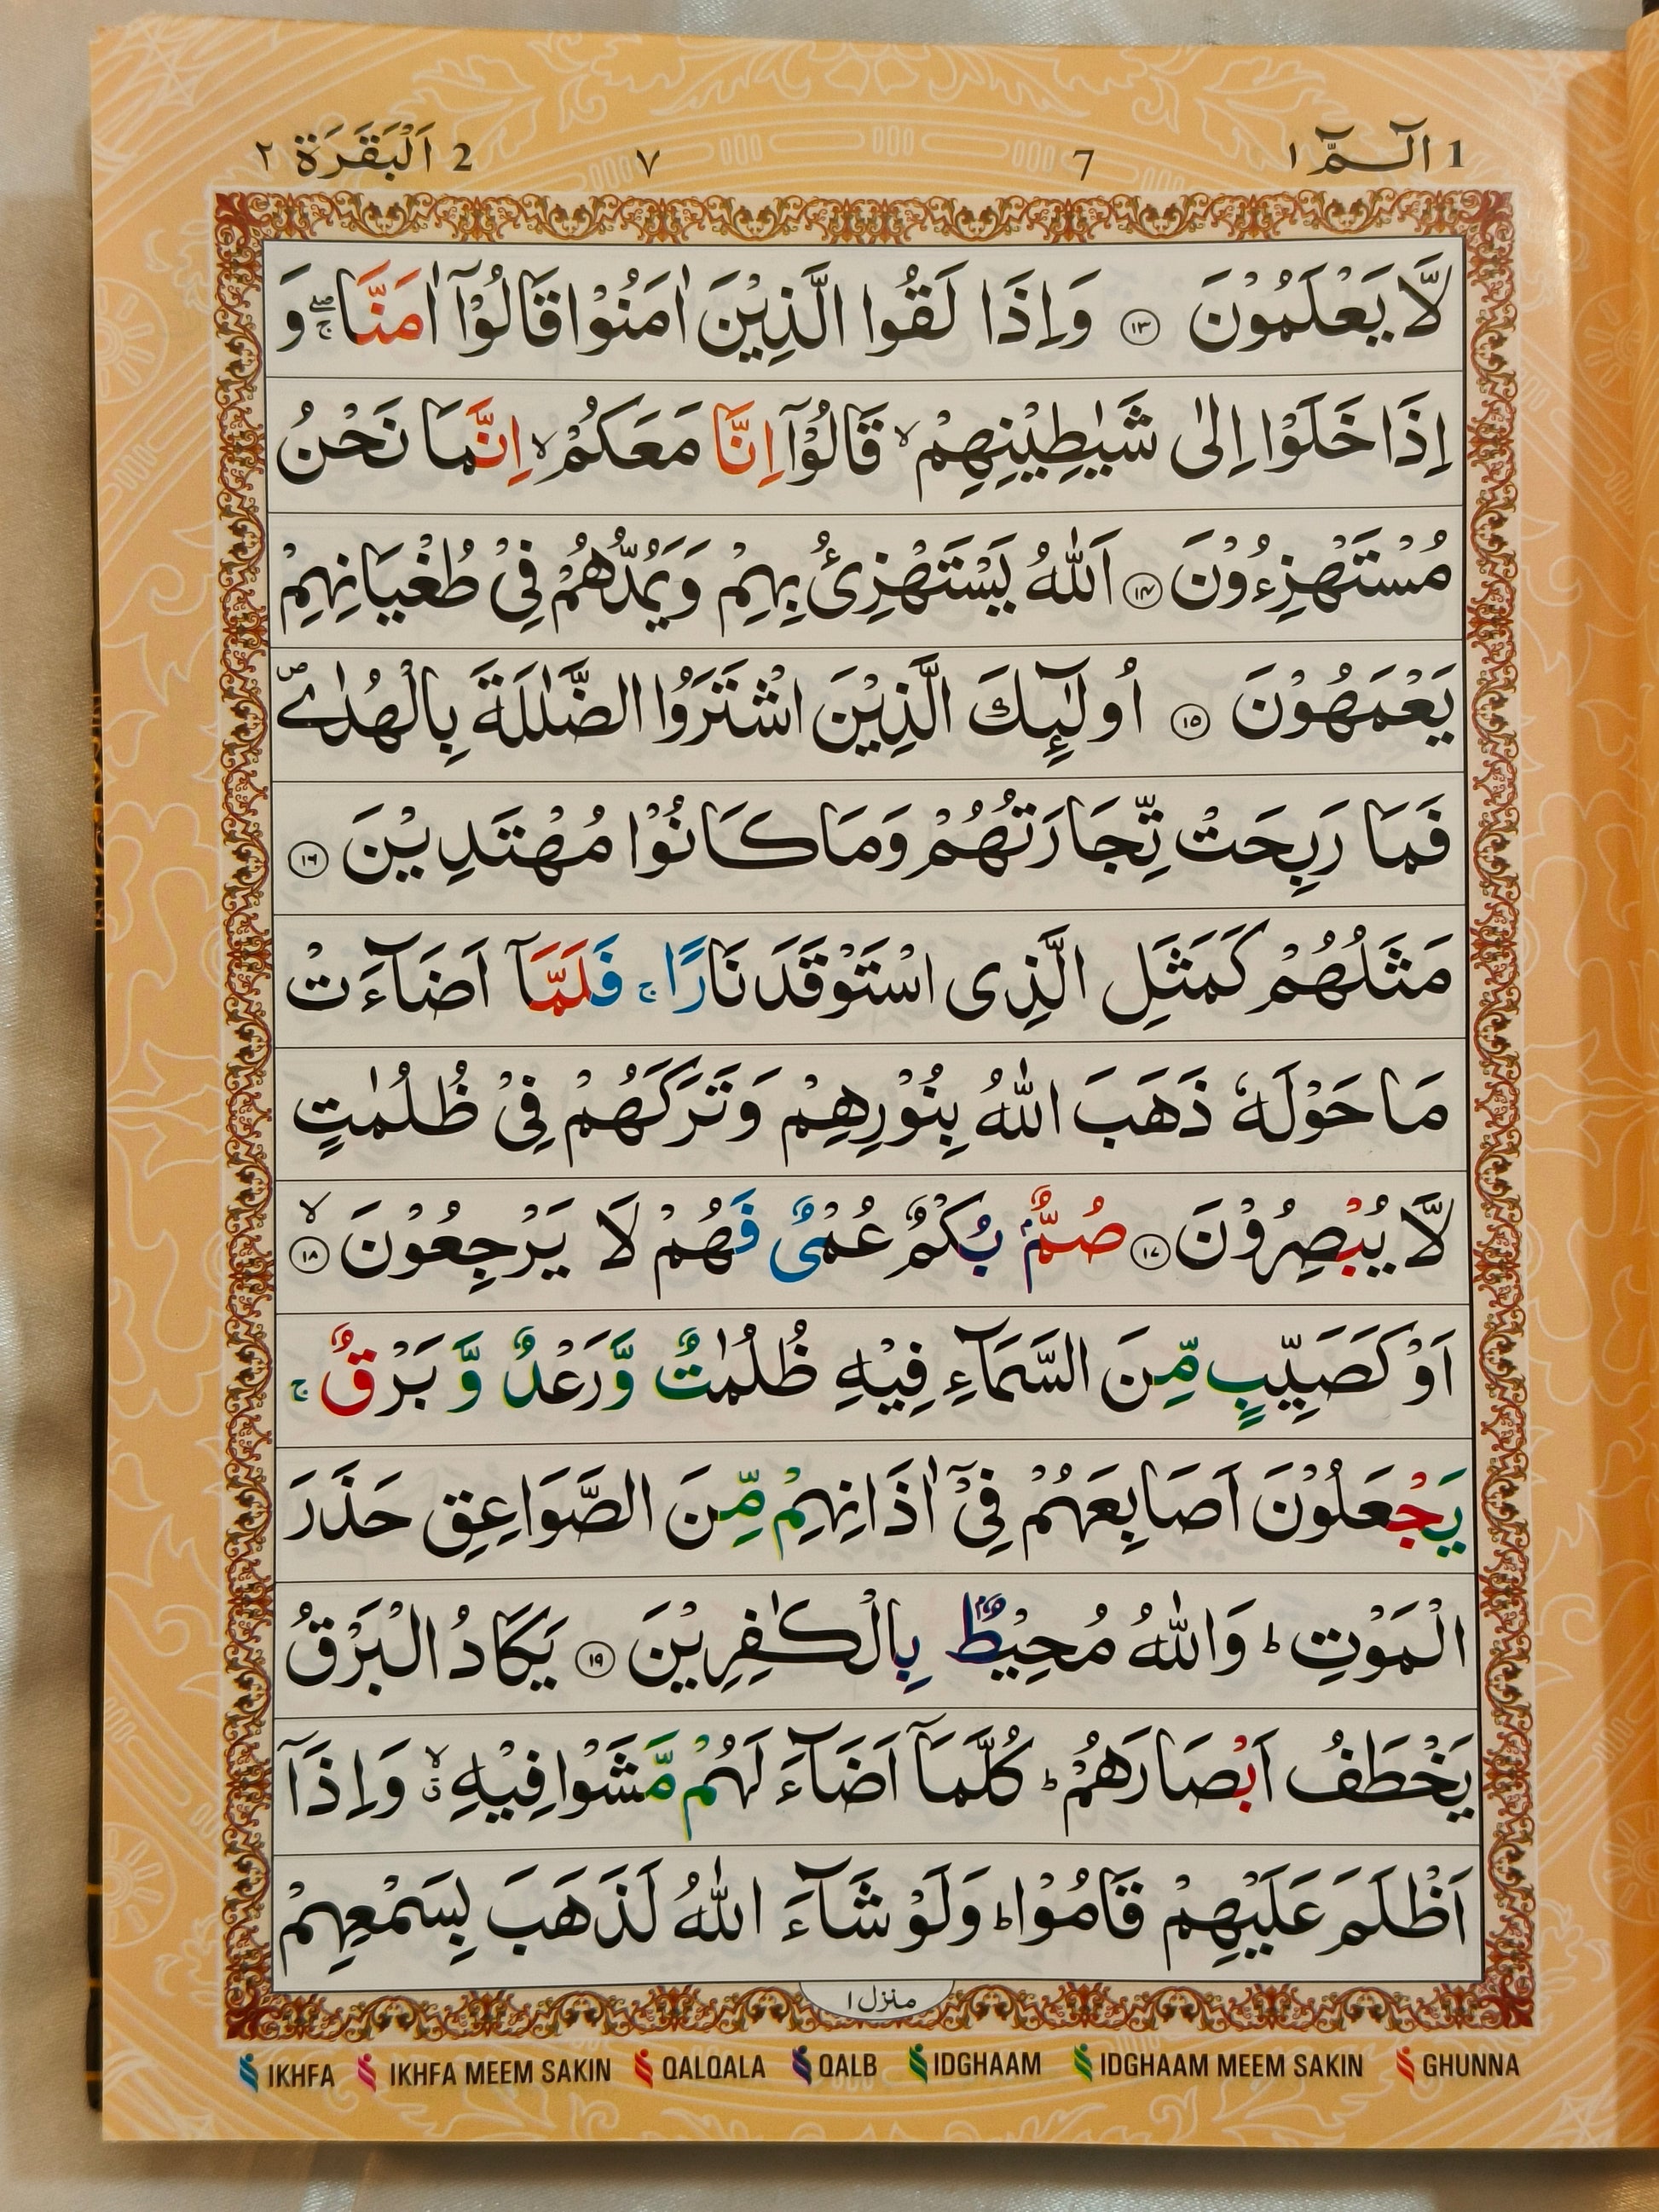 1 الٓـمّٓ ١ 7 ٧ 2 اَلْبَقَرَة ٢
لَّا يَعْلَمُوْنَ ١٣ وَاِذَا لَقُوا الَّذِيْنَ اٰمَنُوْا قَالُوْٓا اٰمَنَّا ۚۖ وَ
اِذَا خَلَوْا اِلٰى شَيٰطِيْنِهِمْ ۙ قَالُوْٓا اِنَّا مَعَكُمْ ۙ اِنَّمَا نَحْنُ
مُسْتَهْزِءُوْنَ ١٤ اَللّٰهُ يَسْتَهْزِئُ بِهِمْ وَيَمُدُّهُمْ فِيْ طُغْيَانِهِمْ
يَعْمَهُوْنَ ١٥ اُولٰٓئِكَ الَّذِيْنَ اشْتَرَوُا الضَّلٰلَةَ بِالْهُدٰى ۖ
فَمَا رَبِحَتْ تِّجَارَتُهُمْ وَمَا كَانُوْا مُهْتَدِيْنَ ١٦
مَثَلُهُمْ كَمَثَلِ الَّذِى اسْتَوْقَدَ نَارًا ۚ فَلَمَّآ اَضَآءَتْ
مَا حَوْلَهٗ ذَهَبَ اللّٰهُ بِنُوْرِهِمْ وَتَرَكَهُمْ فِيْ ظُلُمٰتٍ
لَّا يُبْصِرُوْنَ ١٧ صُمٌّۢ بُكْمٌ عُمْىٌ فَهُمْ لَا يَرْجِعُوْنَ ۙ ١٨
اَوْ كَصَيِّبٍ مِّنَ السَّمَآءِ فِيْهِ ظُلُمٰتٌ وَّرَعْدٌ وَّ بَرْقٌ ۚ
يَجْعَلُوْنَ اَصَابِعَهُمْ فِيْٓ اٰذَانِهِمْ مِّنَ الصَّوَاعِقِ حَذَرَ
الْمَوْتِ ؕ وَاللّٰهُ مُحِيْطٌۢ بِالْكٰفِرِيْنَ ١٩ يَكَادُ الْبَرْقُ
يَخْطَفُ اَبْصَارَهُمْ ؕ كُلَّمَآ اَضَآءَ لَهُمْ مَّشَوْا فِيْهِ ۙۗ وَاِذَآ
اَظْلَمَ عَلَيْهِمْ قَامُوْا ؕ وَلَوْ شَآءَ اللّٰهُ لَذَهَبَ بِسَمْعِهِمْ
منزل ١
IKHFA IKHFA MEEM SAKIN QALQALA QALB IDGHAAM IDGHAAM MEEM SAKIN GHUNNA